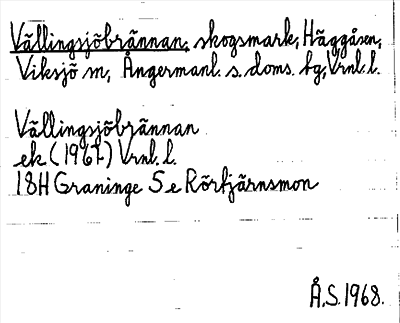 Vällingsjöbrännan, skogsmark, Häggåsen,
Viksjö sn, Ångermanl. s. doms. tg, Vrnl. l.
Vällingsjöbrännan
ek (1967) Vrnl. l.
18H Graninge 5 e Rörtjärnsmon
Å.S. 1968.